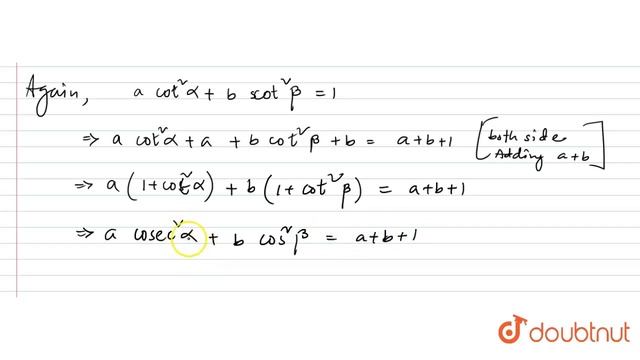 Again, a cot²α + b scot²β = 1
⇒ a cot²α + a + b cot²β + b = a+b+1 [both side Adding a+b]
⇒ a(1+cot²α) + b(1+cot²β) = a+b+1
⇒ a cosec²α + b cos²β = a+b+1
doubtnut